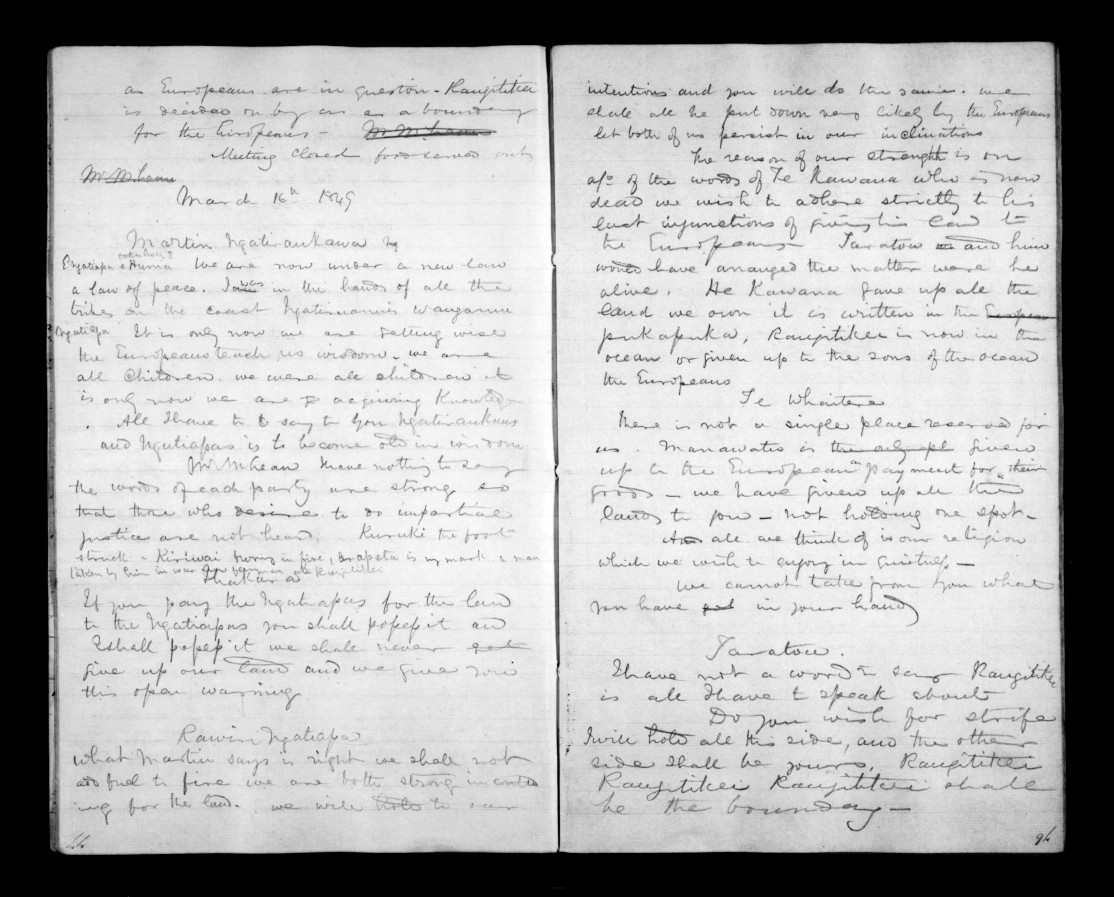 as Europeans are in question - Rangitikei
is decided on by us as a boundary
for the Europeans - Mr McLean
Meeting closed food served out
Mr McLean
March 16th 1849
Martin Ngatiraukawa
Ngatiapa & Huma We are now under a new law
a law of peace. I was in the hands of all the
tribes on the coast Ngatiruanuis Wanganui
Ngatiapa It is only now we are getting wise
the Europeans teach us wisdom - we are
all Children. we were all children it
is only now we are acquiring Knowledge
All I have to say to you Ngatiraukaus
and Ngatiapas is to become old in wisdom
Mr McLean I have nothing to say
the words of each party are strong so
that those who desire to do impartial
justice are not heard. Kuruki the foot
struck - Kiriwai in fire, Arapeta is my mark a man
taken by him in war
Ihakara
If you pay the Ngatiapas for the land
to the Ngatiapas you shall possess it and
I shall possess it we shall never get
give up our land and we give you
this open warning
Rawiri Ngatiapa
what Martin says is right we shall not
add fuel to fire we are both strong in contend
ing for the land. we will hold to our
intentions and you will do the same. we
shall all be put down very likely by the Europeans
let both of us persist in our inclinations
The reason of our strength is on
a/c of the words of Te Kawana who is now
dead we wish to adhere strictly to his
last injunctions of giving his land to
the Europeans - Taratoa and him
would have arranged the matter were he
alive. He Kawana gave up all the
land we own it is written in the European
pukapuka, Rangitikei is now in the
ocean or given up to the sons of the ocean
the Europeans
Te Whaitere
There is not a single place reserved for
us. Manawatu is the only pl given
up to the Europeans in payment for their
goods - we have given up all the
lands to you - not holding one spot -
And all we think of is our religion
which we wish to enjoy in quietness -
we cannot take from you what
you have got in your hands
Taratoa.
I have not a word to say Rangitikei
is all I have to speak about
Do you wish for strife
I will hold all this side, and the other
side shall be yours, Rangitikei
Rangitikei Rangitikei shall
be the boundary -